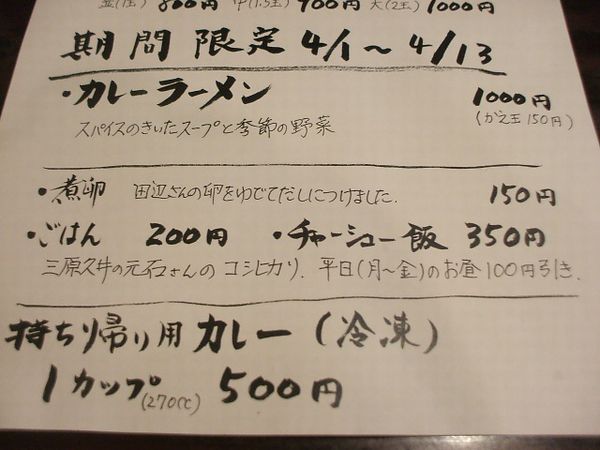 並(1玉) 800円 中(1.5玉) 900円 大(2玉) 1000円
期間限定 4/1～4/13
・カレーラーメン 1000円
スパイスのきいたスープと季節の野菜 (かえ玉150円)
・煮卵 田辺さんの卵をゆでてだしにつけました. 150円
・ごはん 200円 ・チャーシュー飯 350円
三原久井の元石さんのコシヒカリ. 平日(月～金)のお昼100円引き.
持ち帰り用 カレー (冷凍)
1カップ(270cc) 500円